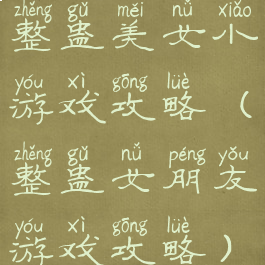 zhěng gǔ měi nǚ xiǎo
整蛊美女小
yóu xì gōng lüè
游戏攻略（
zhěng gǔ nǚ péng yǒu
整蛊女朋友
yóu xì gōng lüè
游戏攻略）